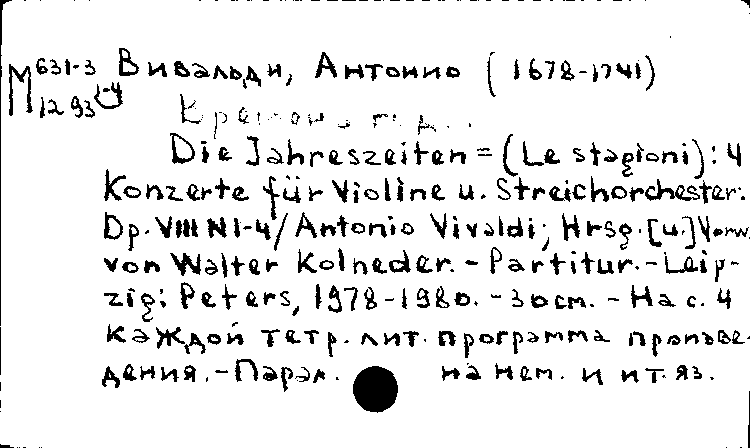 М 631-3 Вивальди, Антонио (1678-1741)
1293 1-4
Времена года.
Die Jahreszeiten = (Le stagioni): 4
Konzerte für Violine u. Streichorchester.
Op. VIII N 1-4 / Antonio Vivaldi; Hrsg. [u.] Vorw.
von Walter Kolneder. - Partitur. - Leip-
zig: Peters, 1978-1980. - 30 см. - На с. 4
каждой тетр. лит. программа произве-
дения. - Парал. на нем. и ит. яз.